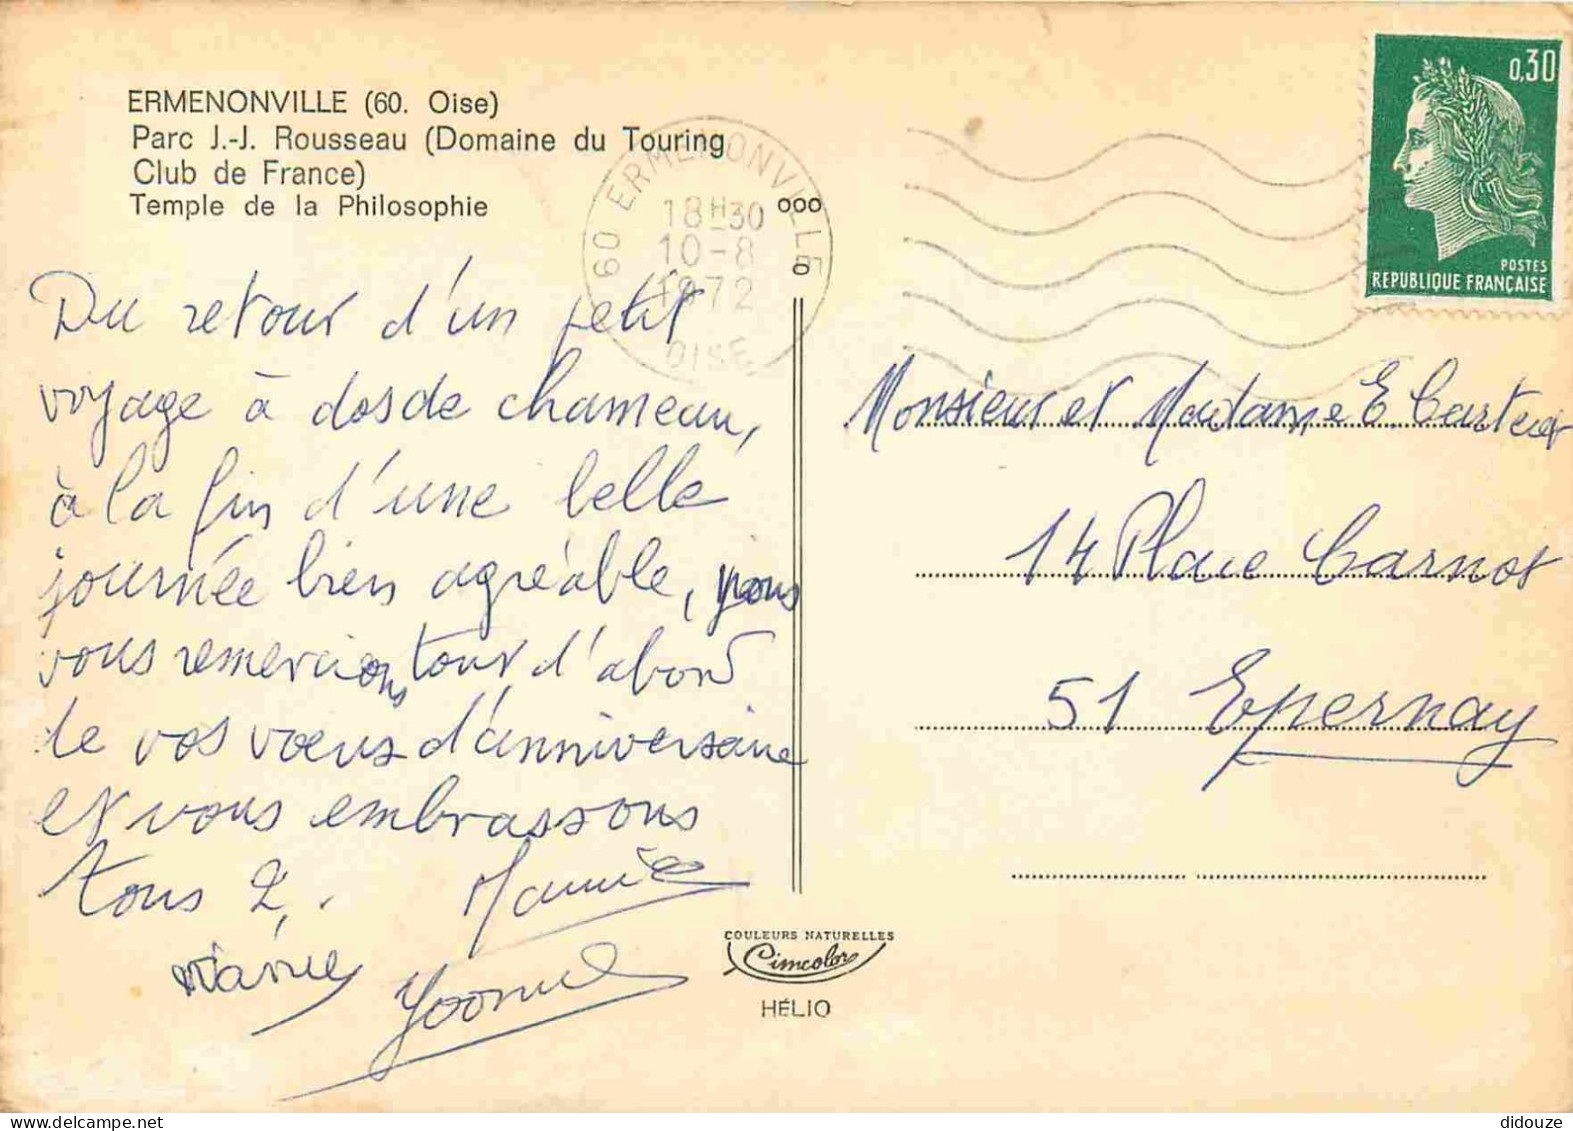 ERMENONVILLE (60. Oise)
Parc J.-J. Rousseau (Domaine du Touring
Club de France)
Temple de la Philosophie
60 ERMENONVILLE
18H30
10-8
1972
OISE
0,30
POSTES
REPUBLIQUE FRANÇAISE
Du retour d'un petit
voyage à dos de chameau,
à la fin d'une belle
journée bien agréable, nous
vous remercions tout d'abord
de vos vœux d'anniversaire
et vous embrassons
tous 2.
Yvonne
Monsieur et Madame E. Cartier
14 Place Carnot
51 Epernay
COULEURS NATURELLES
Cimcolor
HÉLIO
didouze